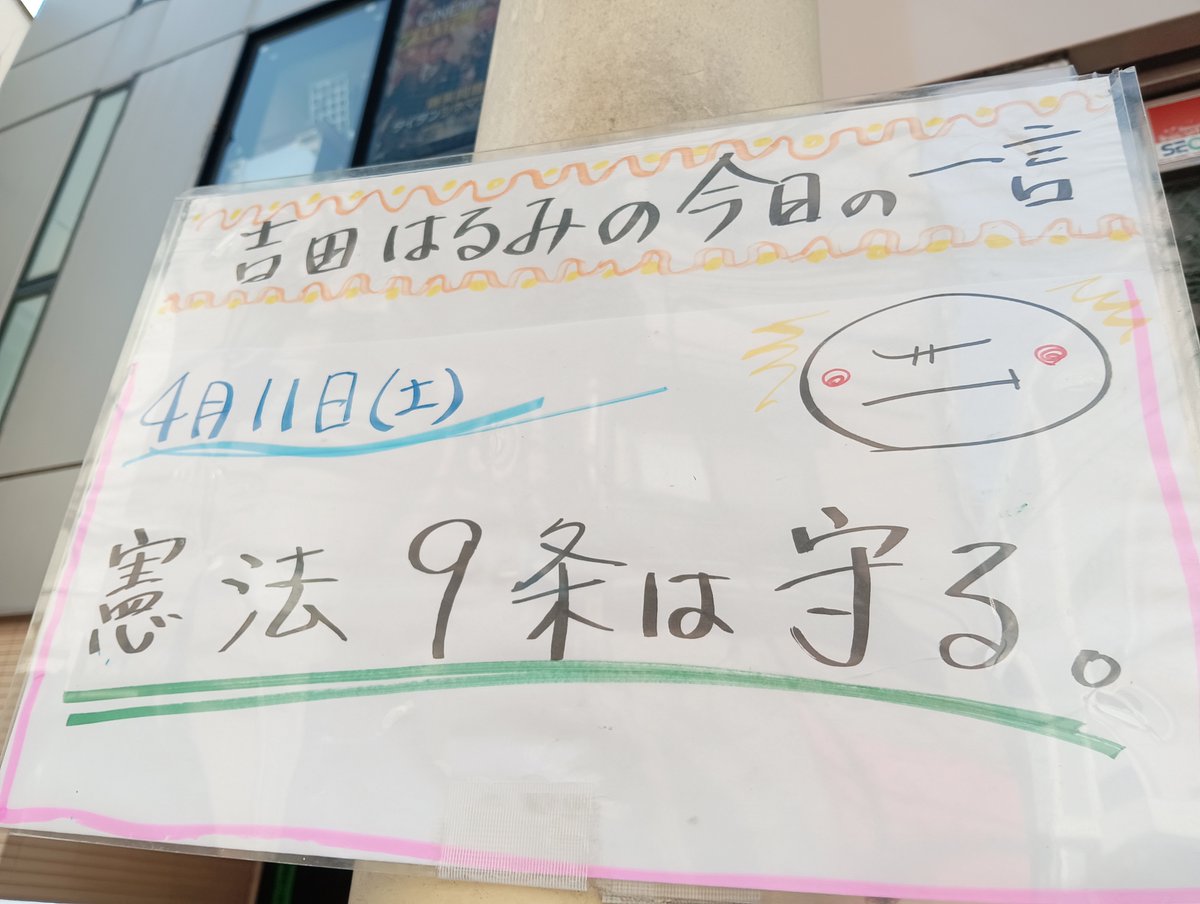 吉田はるみの今日の一言
4月11日(土)
憲法9条は守る。